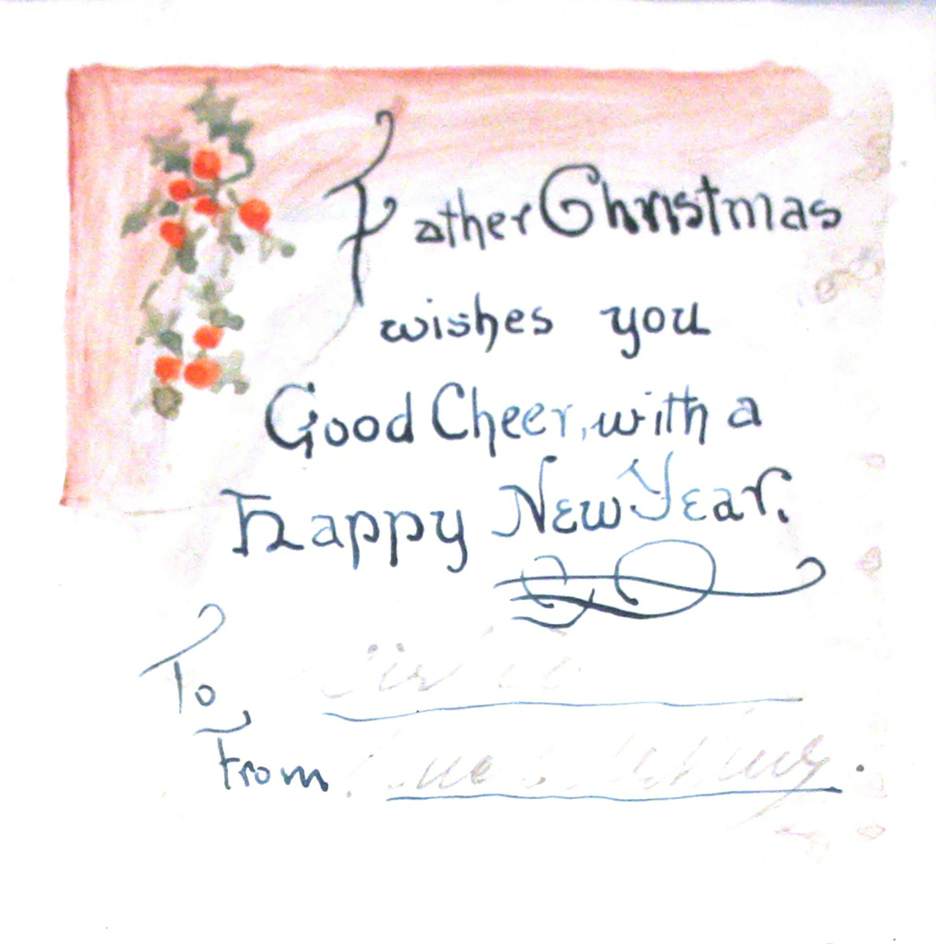 Father Christmas
wishes you
Good Cheer, with a
Happy New Year.
To
From